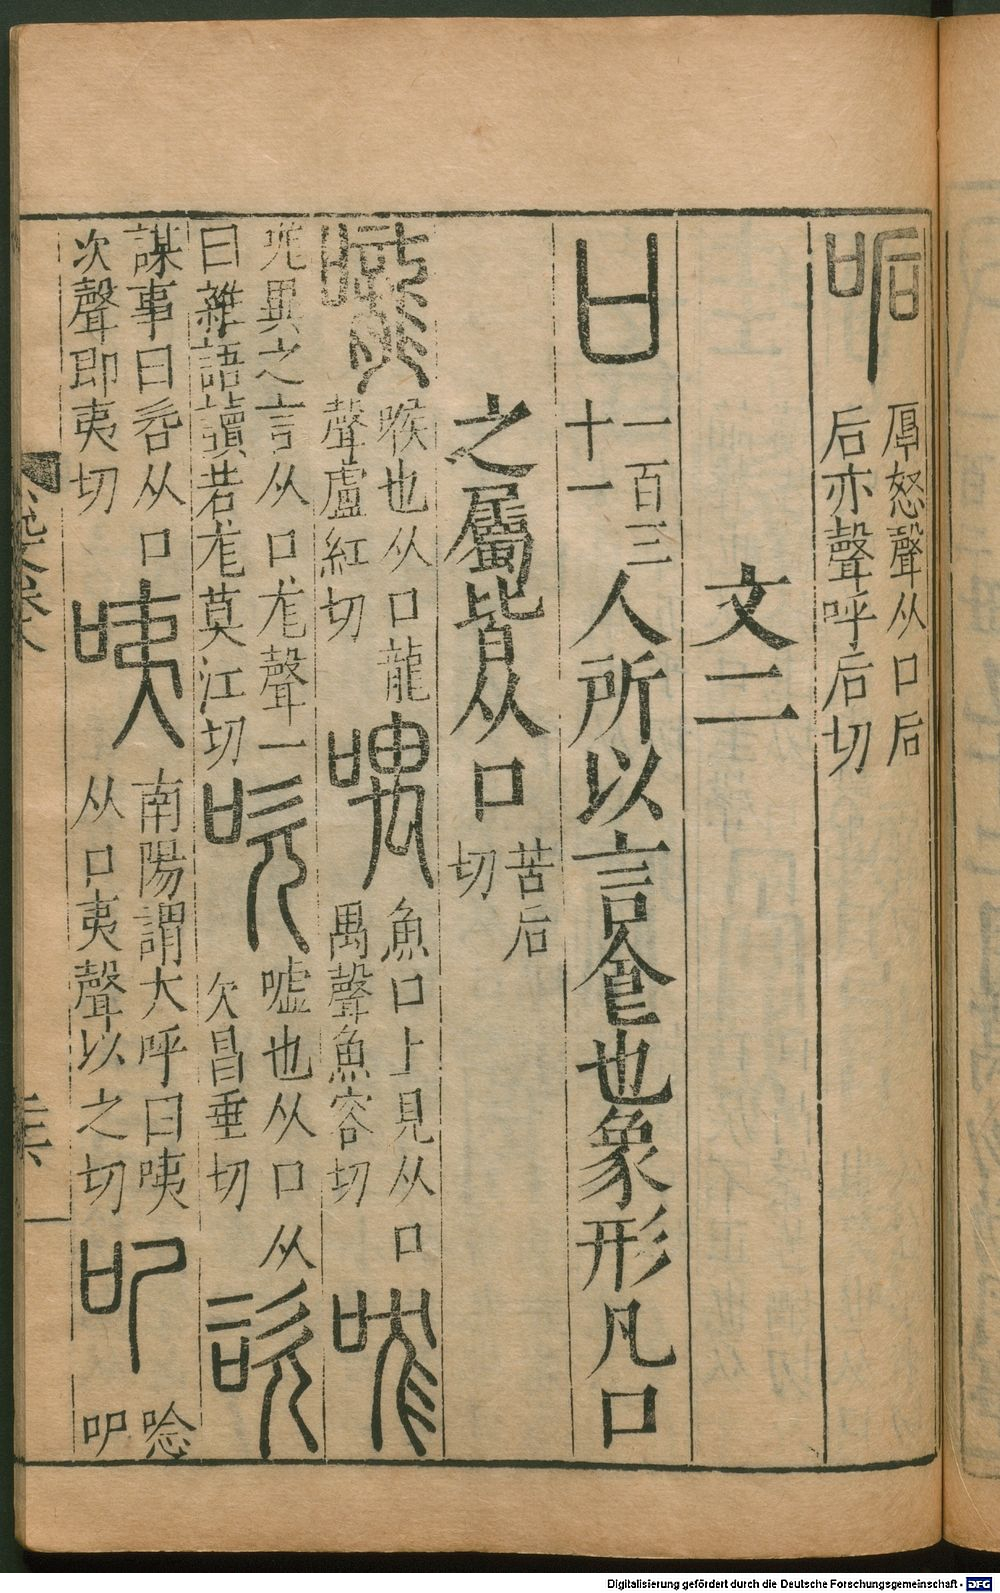 㖃 厚怒聲从口后
后亦聲呼后切
文二
口 一百三
十一 人所以言食也象形凡口
之屬皆从口 苦后
切
嚨 喉也从口龍
聲盧紅切 喁 魚口上見从口
禺聲魚容切 哤
哤異之言从口尨聲一
曰雜語讀若尨莫江切 吹 噓也从口从
欠昌垂切 咨
謀事曰咨从口
次聲即夷切 咦 南陽謂大呼曰咦
从口夷聲以之切 吚 唸
吚
說文卷八
三六
Digitalisierung gefördert durch die Deutsche Forschungsgemeinschaft - DFG